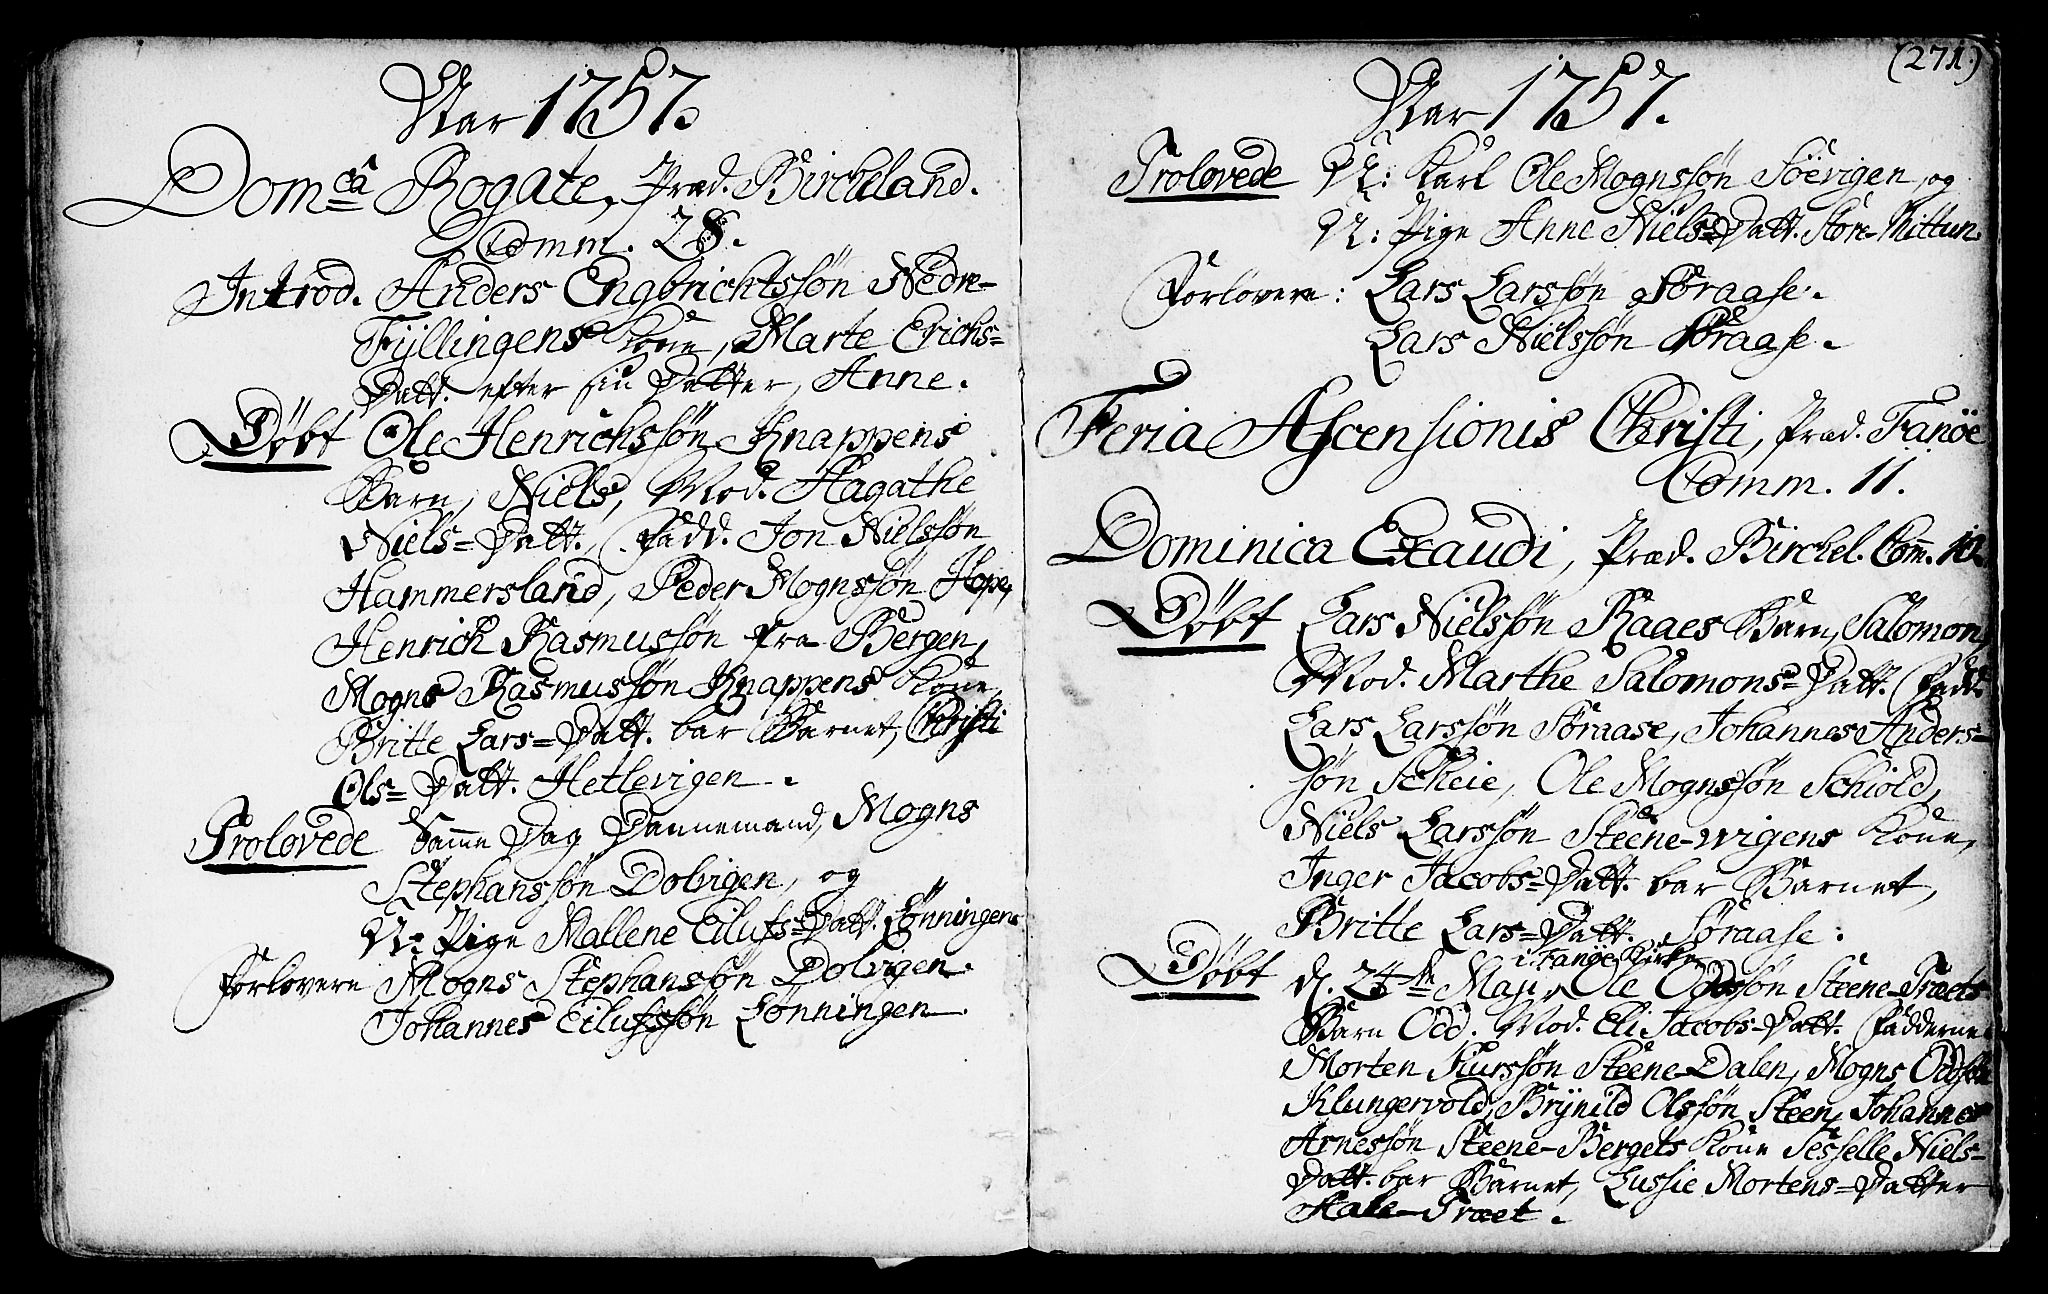 Aar 1757.
Dom:ca Rogate, Præd. Birckeland.
Comm. 28.
Introd. Anders Engbrichtssøn Nedre-
Fÿllingens Kone, Marte Erichs=
Datt. efter sin Datter, Anne.
Døbt Ole Henrichssøn Knappens
Barn, Niels, Mod. Hagathe
Niels=Datt. Fadd. Jon Nielssøn
Hammersland, Peder Mognssøn Hope,
Henrich Rasmussøn fra Bergen,
Mogns Rasmussøn Knappens Kone,
Britte Lars=Datt. bar Barnet, Christi
Ols=Datt. Hetlevigen.
Trolovede Samme Dag Dannemand, Mogns
Stephanssøn Dolvigen, og
N: Pige Mallene Eilufs=Datt. Lønningen
Forlovere Mogns Stephanssøn Dolvigen.
Johannes Eilufssøn Lønningen.
(271.)
Aar 1757.
Trolovede N: Karl Ole Mognssøn Søevigen, og
N: Pige Anne Niels=Datt. Store-Mittun
Forlovere: Lars Larssøn Søraase.
Lars Nielssøn Søraase.
Feria Ascensionis Christi, Præd. Fanöe
Comm. 11.
Dominica Exaudi, Præd. Birckel. Com. 10.
Døbt Lars Nielssøn Raaes Barn, Salomon,
Mod. Marthe Salomons=Datt. Fadd.
Lars Larssøn Søraase, Johannes Anders=
søn Scheie, Ole Mognssøn Schiold,
Niels Larssøn Steene-wigens Kone,
Inger Jacobs=Datt. bar Barnet,
Britte Lars=Datt. Søraase.
i Fanöe Kirke
Døbt d. 24de Maji, Ole Oddssøn Steene-Træets
Barn Odd. Mod. Eli Jacobs=Datt. Fadderne
Morten Siurssøn Steene-Dalen, Mogns Oddssøn
Klungervold, Brÿnild Olssøn Steen, Johannes
Arnessøn Steene-Bergets Kone Sesselle Niels=
Datt. bar Barnet, Lussie Mortens=Datter
Hate-Træet.